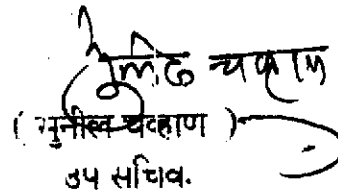 ( सुनील चव्हाण )
उप सचिव.